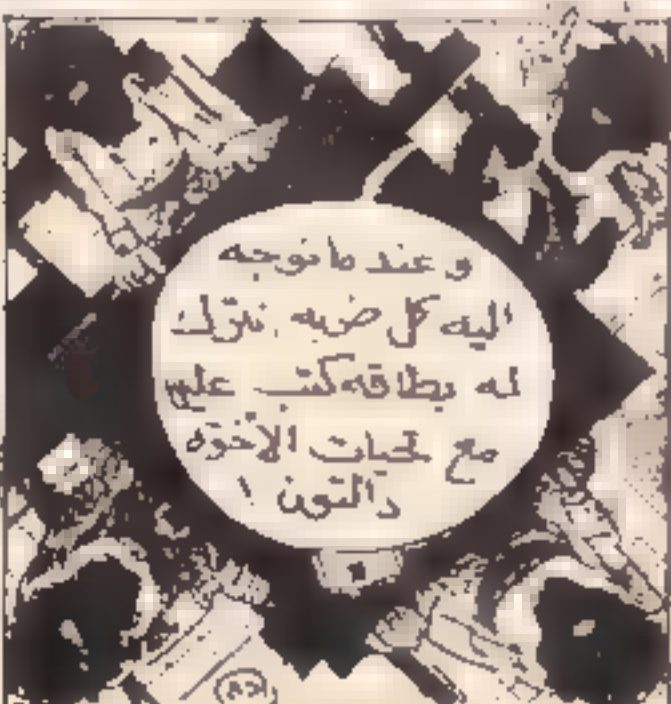 و عند ما نوجه
اليه كل ضربه نترك
له بطاقه كتب عليها
مع تحيات الأخوه
دالتون !